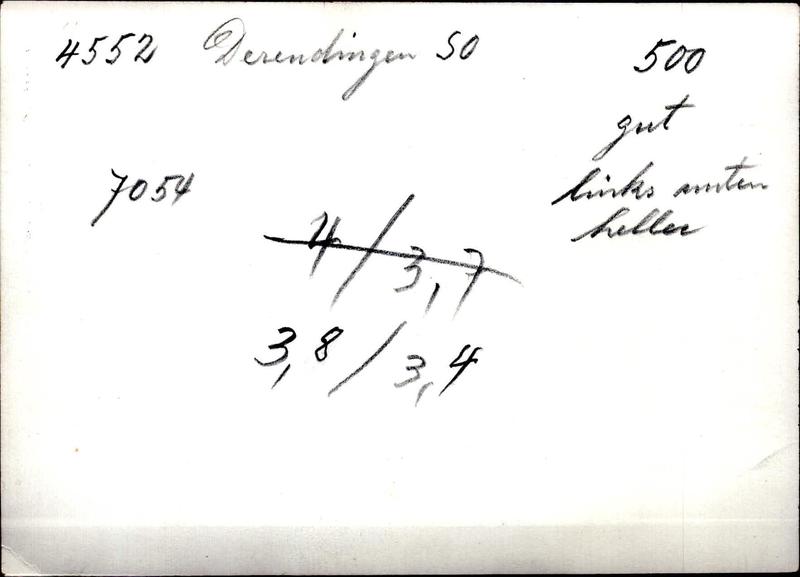 4552 Derendingen SO 500
gut
7054 links unten
heller
4/3,7
3,8/3,4